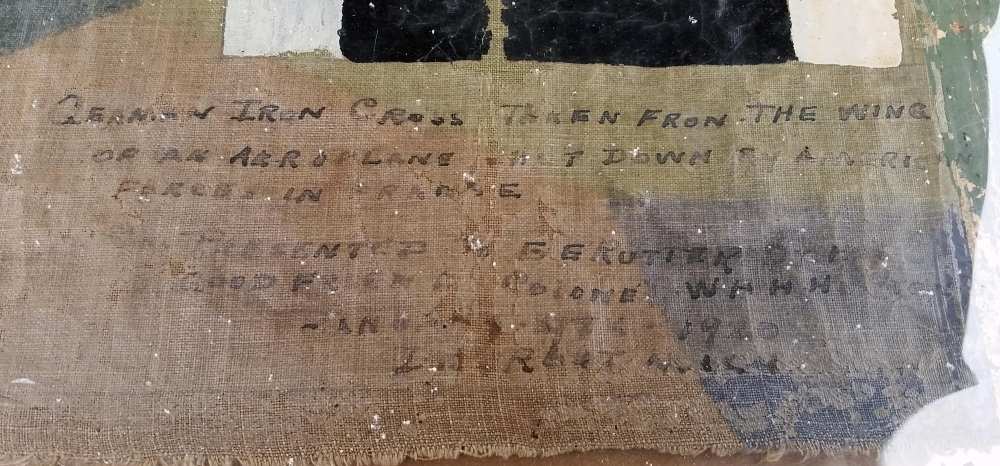 GERMAN IRON CROSS TAKEN FROM THE WING
OF AN AEROPLANE SHOT DOWN BY AMERICAN
FORCES IN FRANCE
PRESENTED TO
GOOD FRIEND COLONEL W H H
1920
DETROIT MICH